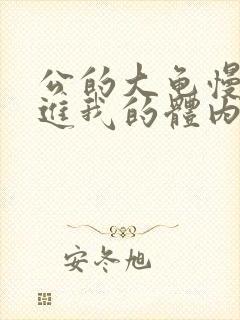 公的大龟慢
進我的體内
安冬旭